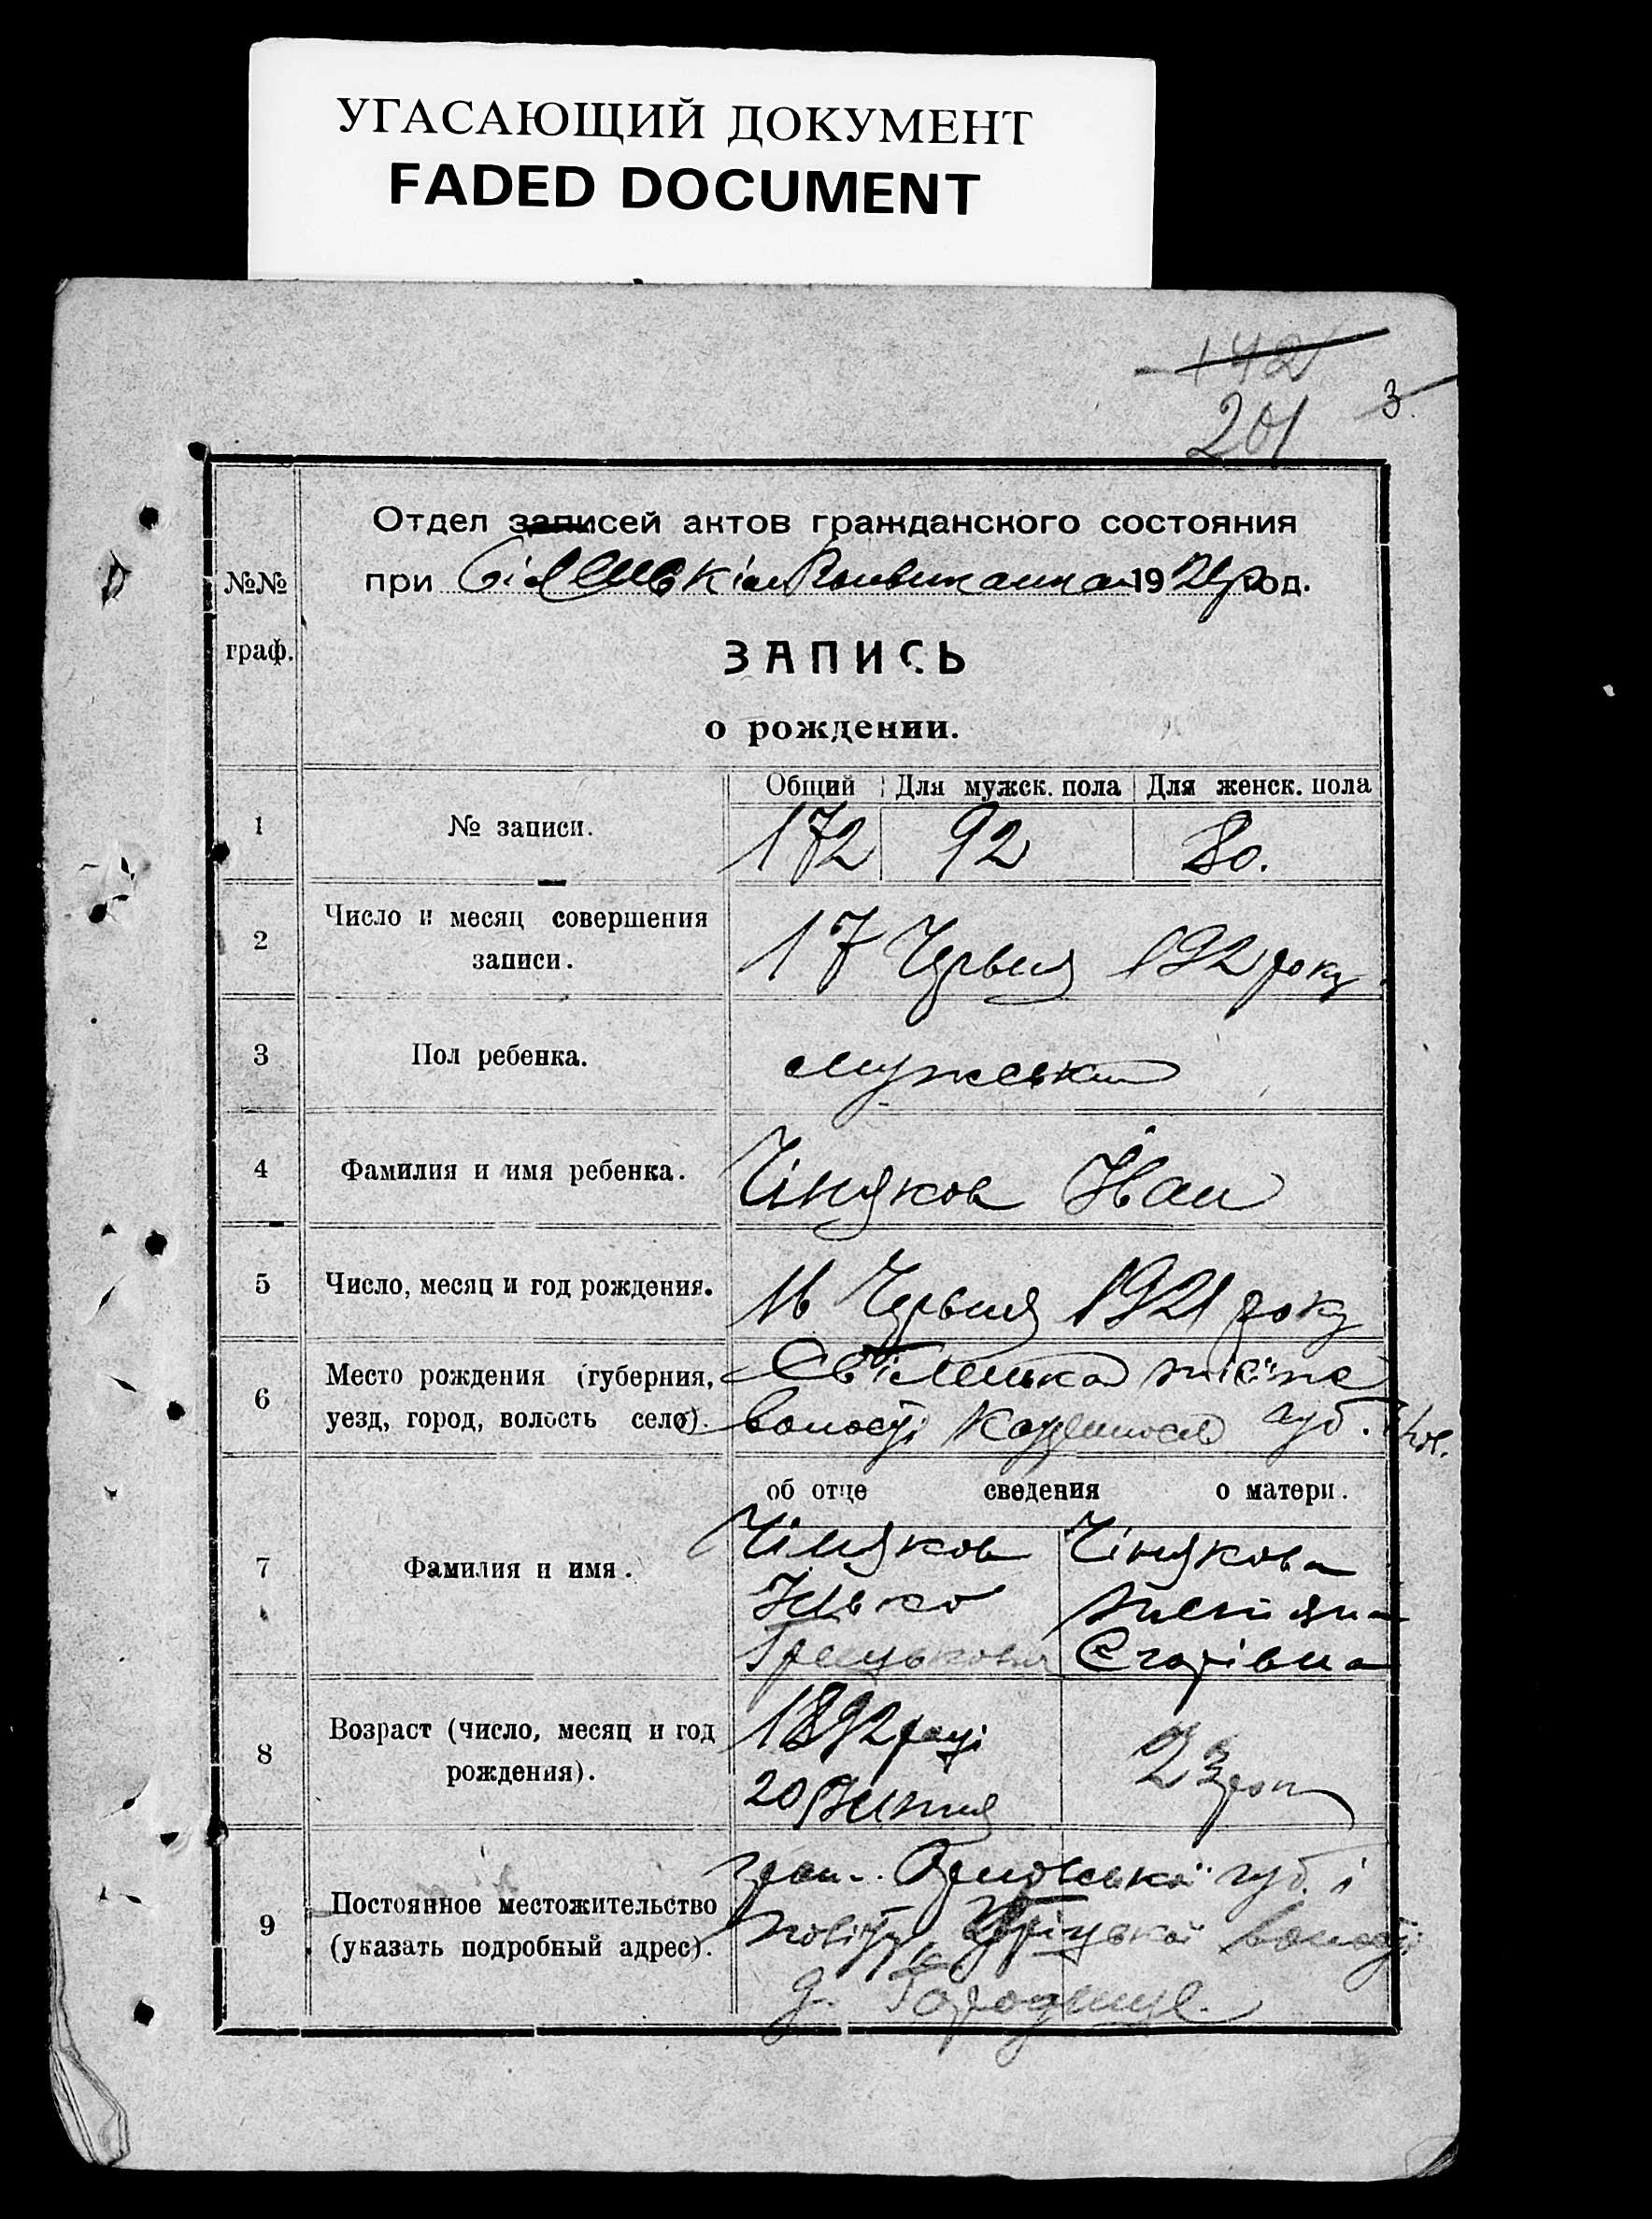 УГАСАЮЩИЙ ДОКУМЕНТ
FADED DOCUMENT
142
3
201
Отдел записей актов гражданского состояния
при 1921 год.
№№
граф.
ЗАПИСЬ
о рождении.
Общий Для мужск. пола Для женск. пола
1 № записи. 172 92 80.
2 Число и месяц совершения
записи.
17 Червня 192 року
3 Пол ребенка. мужеський
4 Фамилия и имя ребенка. Чіняков Іван
5 Число, месяц и год рождения. 16 Червня 1921 року
6 Место рождения (губерния,
уезд, город, волость село).
волості губ.
об отце сведения о матери.
7 Фамилия и имя.
Чіняков Чінякова
Єгорівна
8 Возраст (число, месяц и год
рождения).
1892 році 23 роки
20
9 Постоянное местожительство
(указать подробный адрес).
гром. Орловської губ. і
повіту волості
д. Городище.